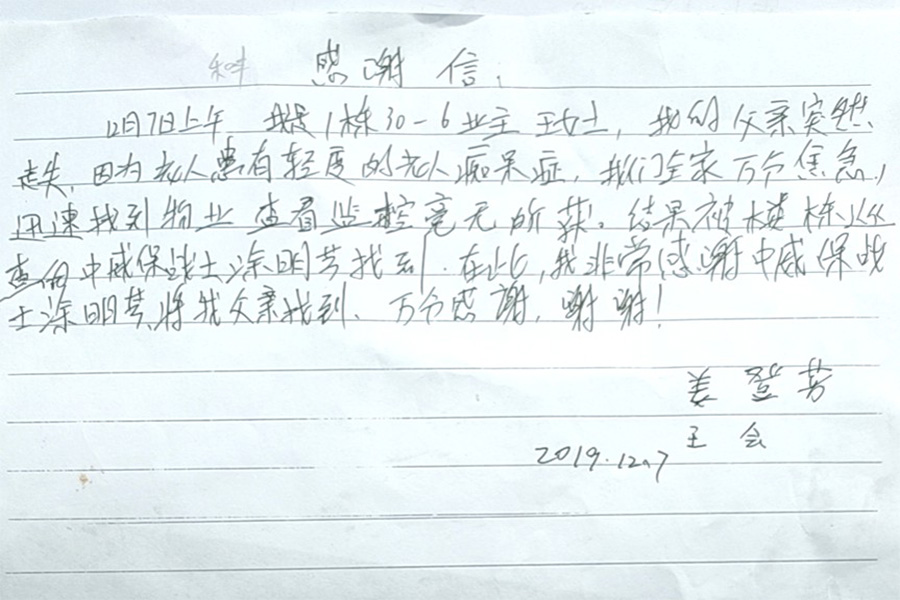 感谢信
12月7日上午 我是1栋30-6业主王女士,我的父亲突然
走失,因为老人患有轻度的老人痴呆症,我们全家万分焦急,
迅速找到物业查看监控毫无所获。结果被楼栋
查的中威保战士涂明芳找到。在此,我非常感谢中威保战
士涂明芳将我父亲找到、万分感谢,谢谢!
姜登芳
王会
2019.12.7